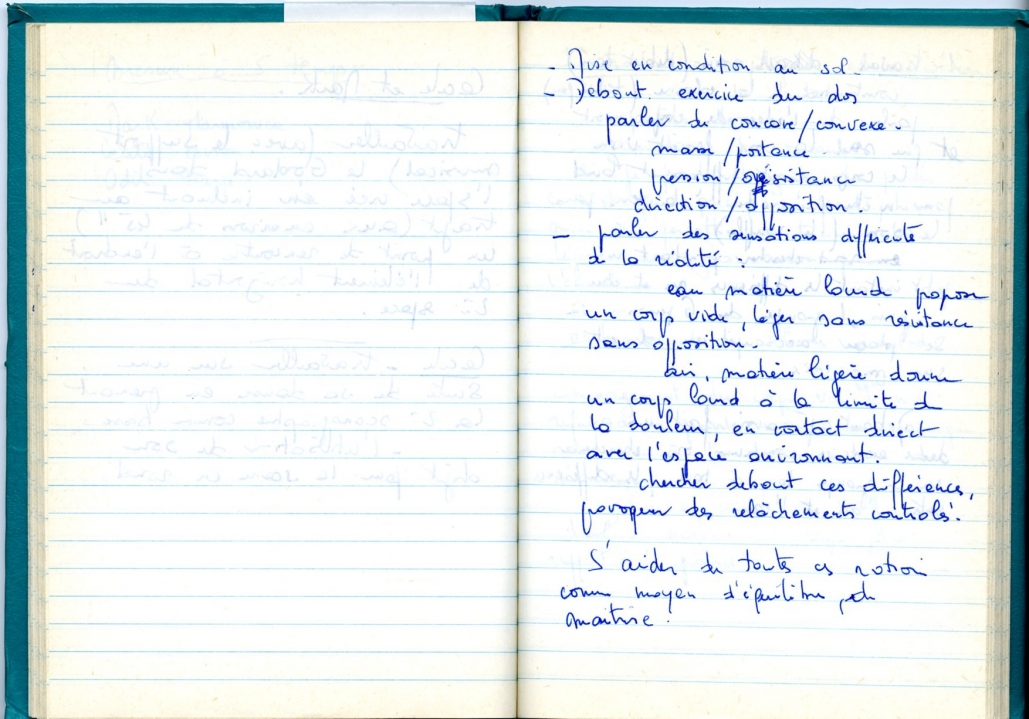 - Mise en condition au sol -
- Debout. exercice du dos
parler du concave/convexe -
masse/portance -
pression/résistance
direction/opposition.
- parler des sensations
de la réalité :
eau matière lourde propose
un corps vide, léger sans résistance
sans opposition.
air, matière légère donne
un corps lourd à la limite de
la douleur, en contact direct
avec l'espace environnant.
chercher debout ces différences,
provoquer des relâchements contrôlés.
S'aider de toutes ces notions
comme moyen d'équilibre, de
maîtrise.